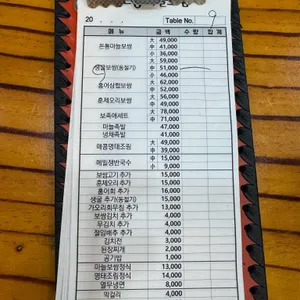 20 . . . Table No. 9
메 뉴 금 액 수 량 합 계
온통마늘보쌈 大 49,000
中 41,000
小 36,000
생굴보쌈(동절기) 大 59,000
中 51,000
小 46,000
홍어삼합보쌈 大 62,000
中 52,000
훈제오리보쌈 大 56,000
中 49,000
보족애세트 大 78,000
中 71,000
마늘족발 47,000
냉채족발 41,000
매콤명태조림 大 49,000
中 39,000
메밀쟁반국수 中 15,000
小 9,000
보쌈고기 추가 15,000
훈제오리 추가 15,000
홍어회 추가 16,000
생굴 추가(동절기) 15,000
가오리회무침 추가 13,000
보쌈김치 추가 4,000
무김치 추가 4,000
절임배추 추가 4,000
김치전 3,000
된장찌개 2,000
공기밥 1,000
마늘보쌈정식 13,000
명태조림정식 14,000
열무냉면 8,000
막걸리 4,000